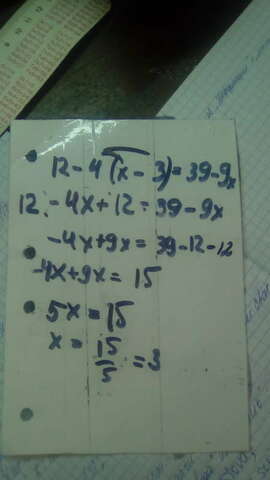 12 - 4(x - 3) = 39 - 9x
12 - 4x + 12 = 39 - 9x
-4x + 9x = 39 - 12 - 12
-4x + 9x = 15
5x = 15
x = 15/5 = 3